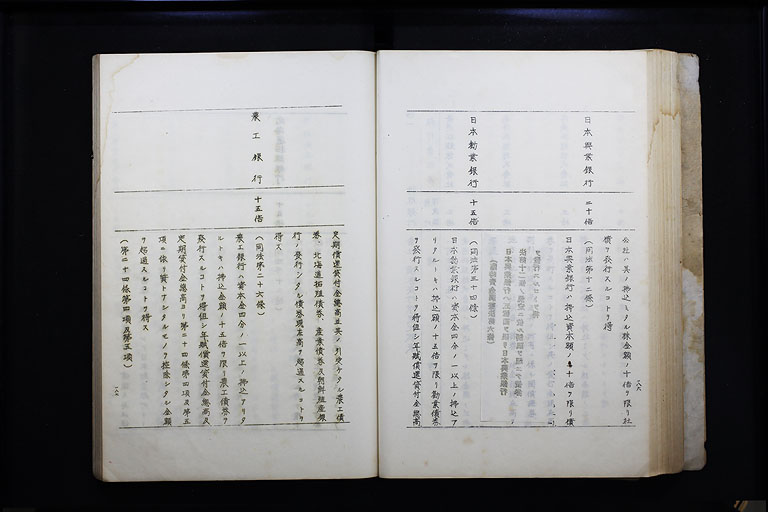 公社ハ其ノ拂込ミタル株金額ノ十倍ヲ限リ社
債ヲ發行スルコトヲ得
日本興業銀行
二十倍
(同法第十二條)
日本興業銀行ハ拂込資本額ノ二十倍ヲ限リ債
日本勸業銀行
十五倍
(同法第三十四條)
日本勸業銀行ハ資本金四分ノ一以上ノ拂込ア
リタルトキハ拂込金額ノ十五倍ヲ限リ勸業債券
ヲ發行スルコトヲ得但シ年賦償還貸付金總高
定期償還貸付金總高並其ノ引受ケタル農工債
券、北海道拓殖債券、産業債券及朝鮮殖産銀
行ノ發行シタル債券現在高ヲ超過スルコトヲ
得ス
農工銀行
十五倍
(同法第二十六條)
農工銀行ハ資本金四分ノ一以上ノ拂込アリタ
ルトキハ拂込金額ノ十五倍ヲ限リ農工債券ヲ
發行スルコトヲ得但シ年賦償還貸付金總高及
定期貸付金總高ヨリ第二十四條第四項及第五
項ニ依リ質トナシタルモノヲ控除シタル金額
ヲ超過スルコトヲ得ス
(第二十四條第四項及第五項)